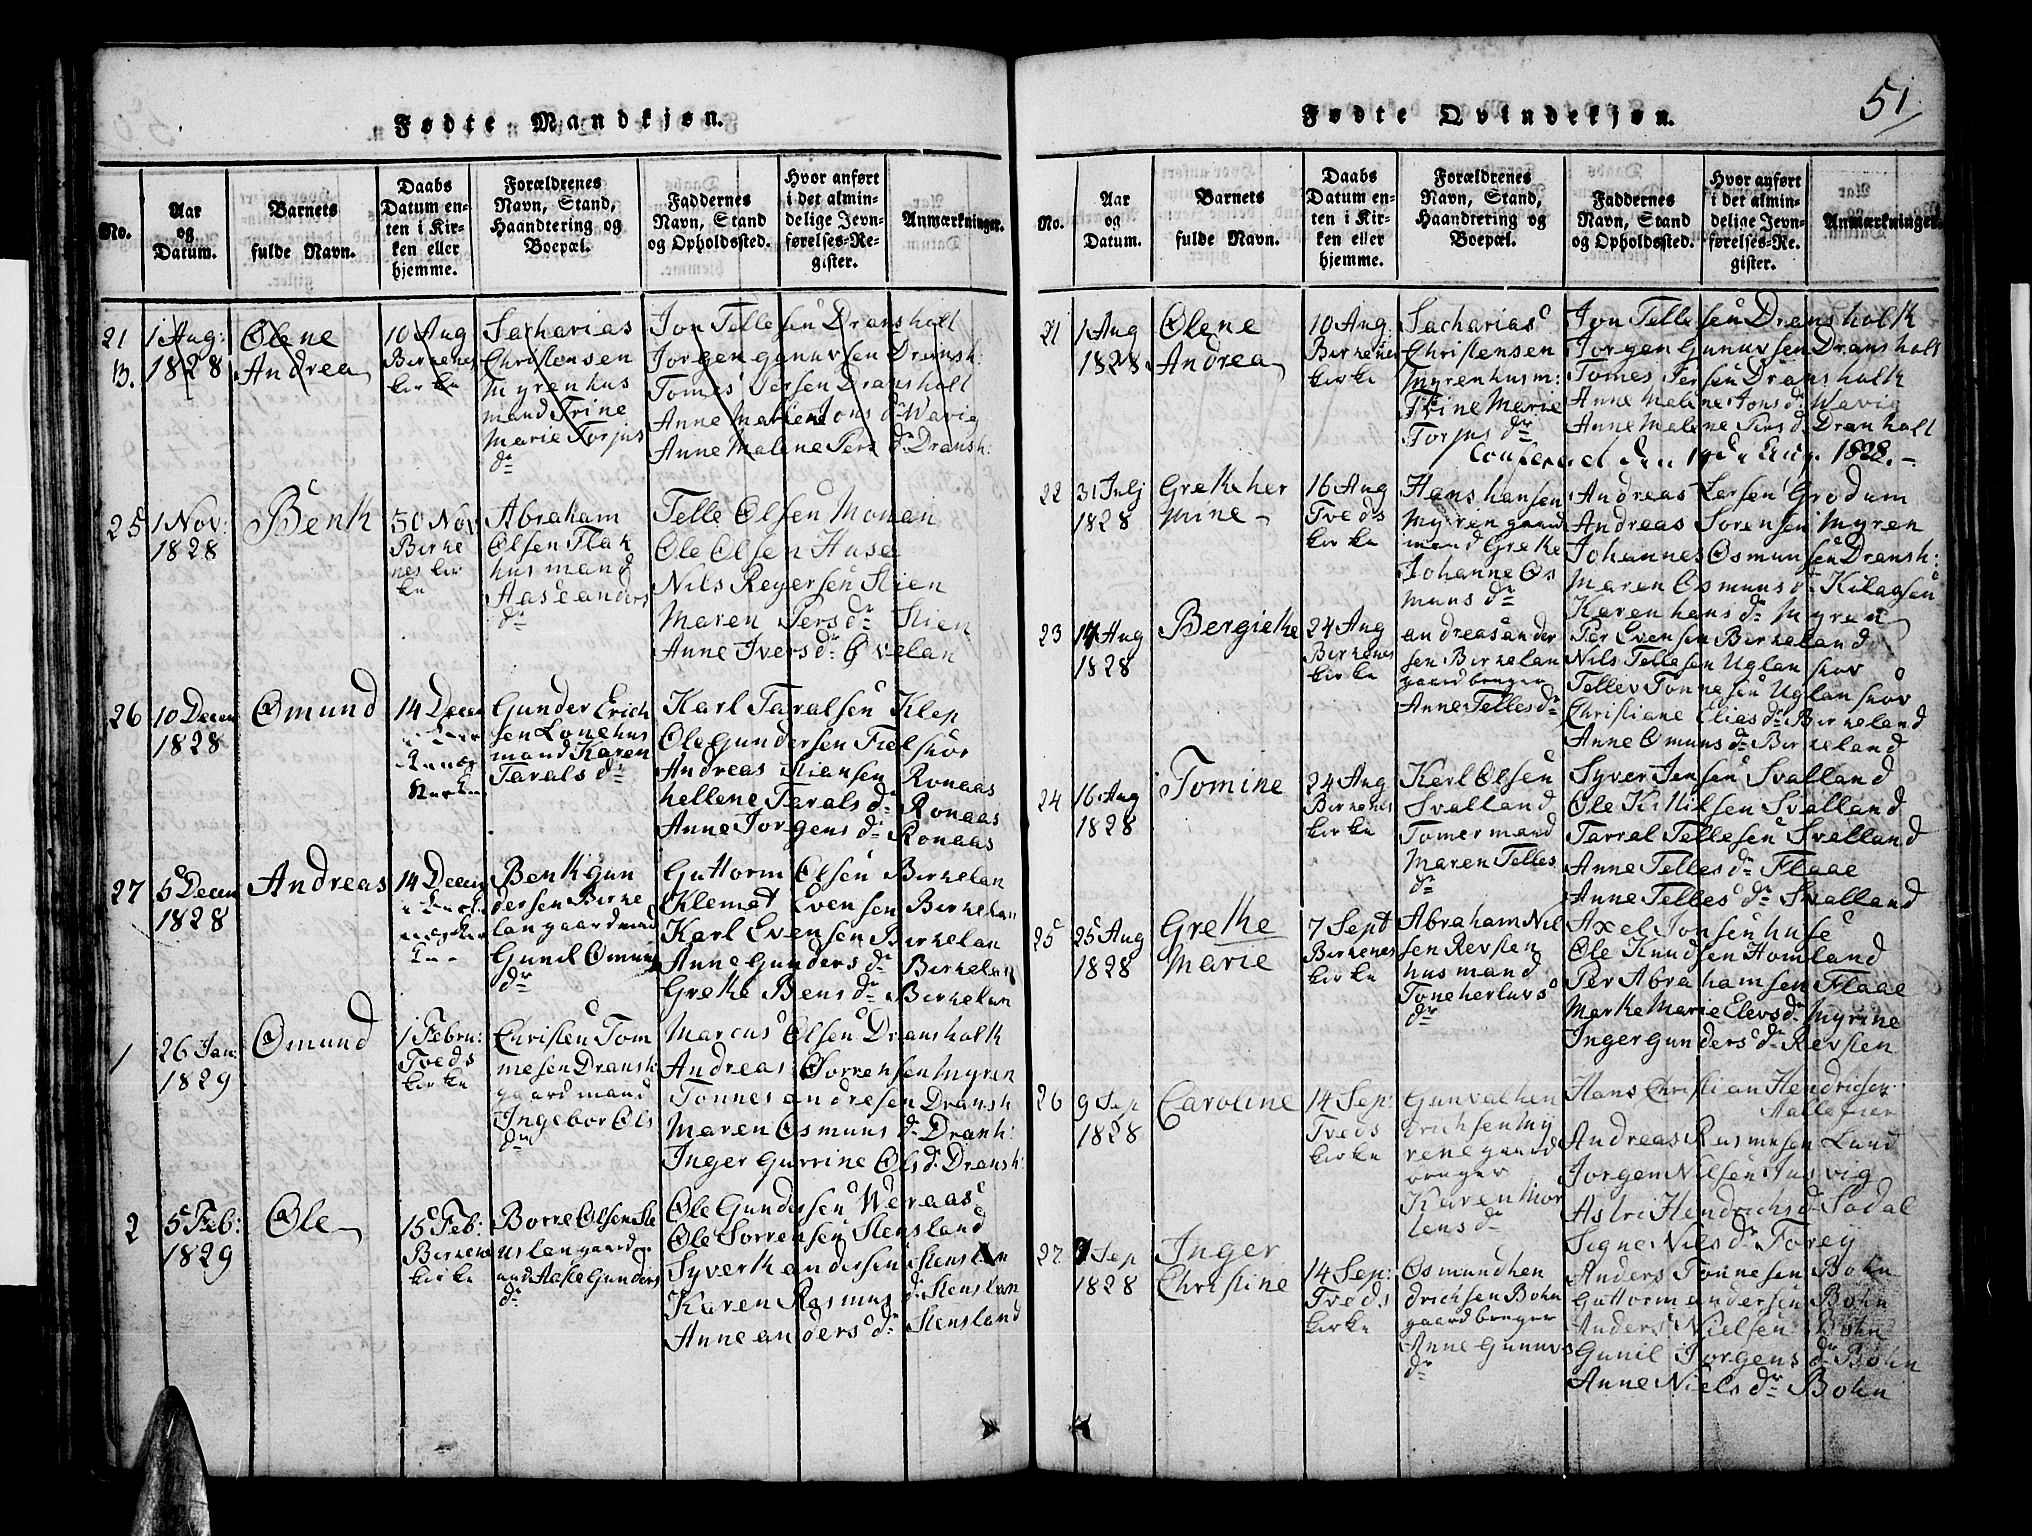 Fødte Mandkjøn.
No.
Aar
og
Datum.
Barnets
fulde Navn.
Daabs
Datum en-
ten i Kir-
ken eller
hjemme.
Forældrenes
Navn, Stand,
Haandtering og
Boepæl.
Faddernes
Navn, Stand
og Opholdssted.
Hvor anført
i det almin-
delige Jevn-
førelses-Re-
gister.
Anmærkninger.
21
1 Aug:
1828
Olene
Andrea
10 Aug
Birkenes
kirke
Sacharias
Christensen
Myren hus
mand Trine
Marie Torjus
dr
Jon Tellesen Dransholt
Jorgen gunuvsen Dransh:
Tomes Persen Dransholt
Anne Malene Jons dr Wavig
Anne Malene Pers dr Dransh:
25
1 Nov:
1828
Benk
30 Nov
Birke
nes kir
ke
Abraham
Olsen Flak
husmand
Aase anders
dr
Telle Olsen Moman
Ole Olsen Huse
Nils Reyersen Stien
Maren Pers dr Stien
Anne Ivers dr Ovelan
26
10 Decem
1828
Omund
14 Decem
Gunder Erich
sen Lonehus
mand Karen
Tarals dr
Karl Taralsen Klep
Ole Gundersen Fielskor
Andreas Stiansen Ronaas
hellene Tarals dr Ronaas
Anne Jorgens dr Ronaas
27
5 Decem
1828
Andreas
14 Decem
Benk gun
dersen Birke
lan gaardmand
Gunil Omuns
dr
Guttorm Olsen Birkelan
Klemet Evensen Birkelan
Karl Evensen Birkelan
Anne Gunders dr Birkelan
Grethe Bens dr Birkelan
1
26 Jan:
1829
Omund
1 Febru:
Tveds
kirke
Christen Tom
mesen Dransh
gaardmand
Ingebor Ols
dr
Marcus Olsen Dransholk
Andreas Sorrensen Myren
Tonnes andresen Dransh
Maren Osmuns dr Dransh:
Inger Gurrine Ols dr Dransh:
2
5 Feb:
1829
Ole
15 Feb:
Birkene
kirke
Borre Olsen Ste
nslan gaard
mand Aase Gunders
dr
Ole Gundersen Weraas
Ole Sorrensen Stensland
Syvert andersen Stenslan
Karen Rasmus dr Stenslan
Anne anders dr Stensland
Fødte Qvindekjøn.
51
No.
Aar
og
Datum.
Barnets
fulde Navn.
Daabs
Datum en-
ten i Kir-
ken eller
hjemme.
Forældrenes
Navn, Stand,
Haandtering og
Boepæl.
Faddernes
Navn, Stand
og Opholdssted.
Hvor anført
i det almin-
delige Jevn-
førelses-Re-
gister.
Anmærkninger.
21
1 Aug
1828
Olene
Andrea
10 Aug.
Birkenes
kirke
Sacharias
Christensen
Myren husm:
Trine Marie
Torjus dr
Jon Tellesen Dransholk
Jorgen Gunuvsen Dransholt
Tomes Persen Dransholk
Anne Malene Jons dr Wavig
Anne Malene Pers dr Dranholt
Confererd den 19de Aug. 1828.
22
31 Julj
1828
Grethe her
mine
16 Aug
Tveds
kirke
Hans hansen
Myren gaard
mand Grethe
Johanne Os
muns dr
Andreas Larsen Grodum
Andreas Sorensen Myren
Johannes Osmunsen Dransh:
Maren Osmuns dr Kilaasen
Karen hans dr Myren
23
14 Aug
1828
Bergiethe
24 Aug
Birkenes
kirke
andreas ander
sen Birkelan
gaardbruger
Anne Telles dr
Per Evensen Birkeland
Nils Tellesen Uglanskov
Tellev Tonnesen Uglanskov
Christiane Elias dr Birkeland
Anne Omuns dr Birkeland
24
16 Aug
1828
Tomine
24 Aug
Birkenes
kirke
Karl Olsen
Svalland
Tomermand
Maren Telles
dr
Syver Jensen Svalland
Ole Kittilsen Svalland
Tarral Tellesen Svalland
Anne Telles dr Flaae
Anne Telles dr Svalland
25
25 Aug
1828
Grethe
Marie
7 Sept
Birkenes
kirke
Abraham Nil
sen Revsten
husmand
Tone herluvs
dr
Axel Jonsen huse
Ole Knudsen Homland
Per Abrahamsen Flaae
Marthe Marie Elevs dr Myrine
Inger gunders dr Revsten
26
9 Sep
1828
Caroline
14 Sep:
Tveds
kirke
Gunval hen
drichsen My
rene gaard
bruger
Karen Mor
tens dr
Hans Christian Hendrichsen
Andreas Rasmusen Lund
Jorgen Nilsen Jusvig
Astri Hendrichs dr Sodal
Signe Nils dr Forey
27
Sep
1828
Inger
Christine
14 Sep:
Tveds
kirke
Osmund hen
drichsen Bohn
gaardbruger
Anne Gunuvs
dr
Anders Tonnesen Bohn
Guttorm andersen Bohn
Anders Nielsen Bohn
Gunil Jorgens dr Bohn
Anne Niels dr Bohn